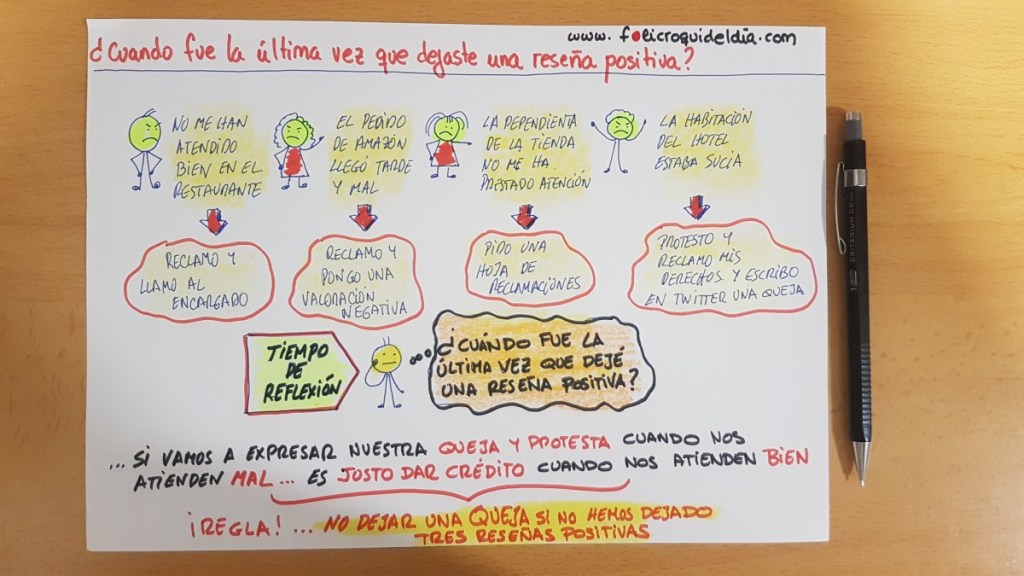 www.felicroquideldia.com
¿Cuando fue la última vez que dejaste una reseña positiva?
NO ME HAN
ATENDIDO
BIEN EN EL
RESTAURANTE
EL PEDIDO
DE AMAZÓN
LLEGÓ TARDE
Y MAL
LA DEPENDIENTA
DE LA TIENDA
NO ME HA
PRESTADO ATENCIÓN
LA HABITACIÓN
DEL HOTEL
ESTABA SUCIA
RECLAMO Y
LLAMO AL
ENCARGADO
RECLAMO Y
PONGO UNA
VALORACIÓN
NEGATIVA
PIDO UNA
HOJA DE
RECLAMACIONES
PROTESTO Y
RECLAMO MIS
DERECHOS Y ESCRIBO
EN TWITTER UNA QUEJA
TIEMPO
DE
REFLEXIÓN
¿CUÁNDO FUE LA
ÚLTIMA VEZ QUE DEJÉ
UNA RESEÑA POSITIVA?
... SI VAMOS A EXPRESAR NUESTRA QUEJA Y PROTESTA CUANDO NOS
ATIENDEN MAL... ES JUSTO DAR CRÉDITO CUANDO NOS ATIENDEN BIEN
¡REGLA!... NO DEJAR UNA QUEJA SI NO HEMOS DEJADO
TRES RESEÑAS POSITIVAS